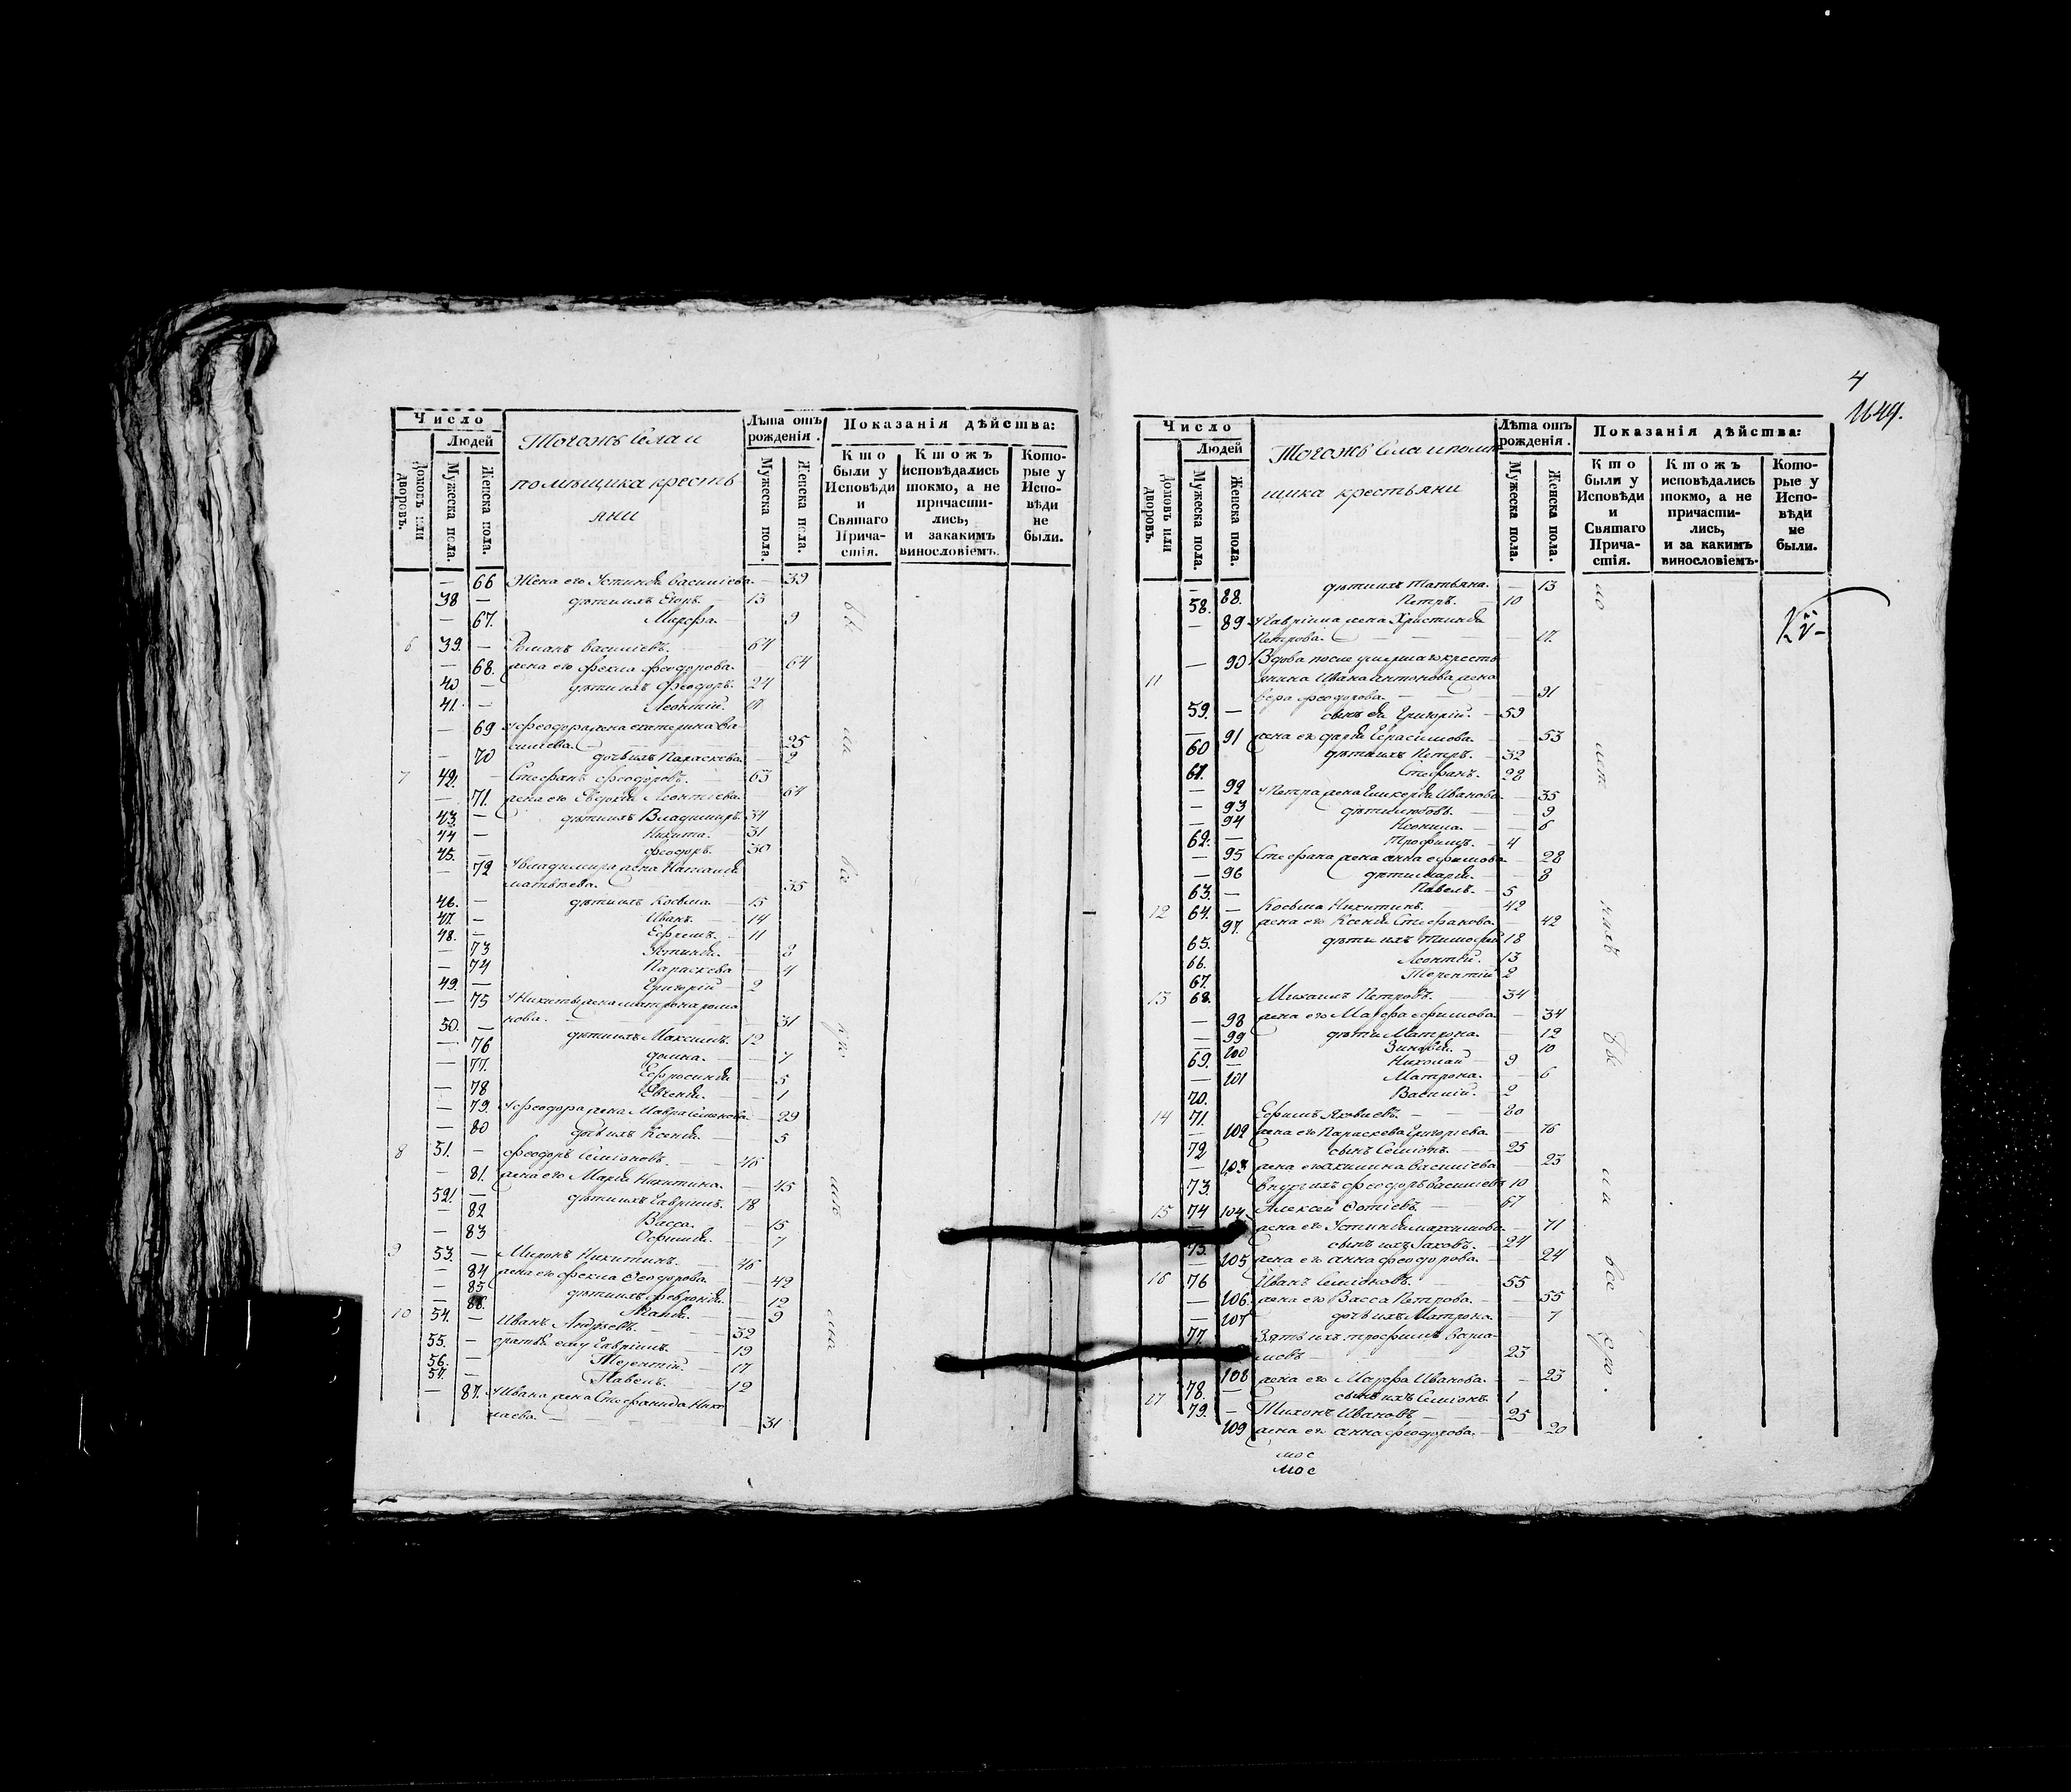 Число
Людей
Домовъ или дворовъ.
Мужеска пола.
Женска пола.
Тогожъ Села и
помѣщика кресть
яни
Лѣта отъ рожденія.
Мужеска пола.
Женска пола.
Показанія дѣйства:
Кто были у Исповѣди и Святаго Причастія.
Ктожъ исповѣдались токмо, а не причастились, и закакимъ винословіемъ.
Которые у Исповѣди не были.
— 66 Жена его Устинія Василіева. — 39
38 — дѣти ихъ Егоръ. 13
— 67. Марѳа. 9
6 39. — Романъ Василіевъ. 64
— 68. жена его Ѳекла Ѳеодорова. — 64
40 — дѣти ихъ Ѳеодоръ. 24
41. — Леонтій. 17
— 69 Ѳеодора жена екатерина Ва
силіева. 25
— 70 дочь ихъ Параскева. 2
7 42. — Стефанъ Ѳеодоровъ. 63
— 71. жена его Евдокія Леонтіева. — 64
43. — дѣти ихъ Владимиръ. 34
44 — Никита. 31
45. — Ѳеодоръ. 30
— 72 Владимира жена Наталія
матвѣева. 35
46. — дѣти ихъ Косьма. — 15
47. — Иванъ. — 14
48. — Ефимъ. — 11
— 73 Устинія. — 8
— 74 Параскева — 4
49. — Григорій — 2
— 75 Никиты жена матрона рома
нова. 31
50. — дѣти ихъ Максимъ. 12
— 76 домна. — 7
— 77. Ефросинія — 5
— 78 Евгенія. — 1
— 79. Ѳеодора жена Мавра Семенова — 29
— 80 дочь ихъ Ксенія. — 5
8 51. — Ѳеодоръ Семіоновъ. 46
— 81. жена его Марія Никитина. — 45
52. — дѣти ихъ Гавріилъ. 18
— 82 Васса. — 15
— 83 7
9 53. — Миронъ Никитинъ. 46
— 84 жена его Ѳекла Ѳеодорова. — 42
— 85 дѣти ихъ Ѳевронія. — 12
— 86. — 9
10 54. — Иванъ Андреевъ. — 32
55. — братья ему Гавріилъ. — 19
56. — Терентій. — 17
57. — Павелъ. — 12
— 87. Ивана жена Стефанида Нико
лаева. — 31
4
1649.
Число
Людей
Домовъ или дворовъ.
Мужеска пола.
Женска пола.
Тогожъ Села и помѣ
щика крестьяни
Лѣта отъ рожденія.
Мужеска пола.
Женска пола.
Показанія дѣйства:
Кто были у Исповѣди и Святаго Причастія.
Ктожъ исповѣдались токмо, а не причастились, и за какимъ винословіемъ.
Которые у Исповѣди не были.
— 88. дѣти ихъ Татьяна. — 13
58. Петръ. 10
— 89 Гавріила жена Христинія
Петрова. 17
11 — 90 Вдова после умершаго кресть
янина Ивана Антонова жена
Вера Ѳеодорова. — 91
59. — сынъ ея Григорій. — 59
— 91 жена его дарія Герасимова. — 53
60 дѣти ихъ Петръ. — 32
61. Стефанъ. 28
— 92 Петра жена Гликерія Иванова. — 35
— 93 дѣти любовь. 9
— 94 Неонила. — 6
62. — Трофимъ. — 4
— 95 Стефана жена анна ефимова — 28
— 96 дѣти марія. — 8
63. — Павелъ. — 5
12 64. — Косьма Никитинъ. — 42
97. жена его Ксенія Стефанова. 42
65. дѣти ихъ тимофей 18
66. Леонтій. — 13
67. Терентій 2
13 68. Михаилъ Петровъ. 34
— 98 жена его Марѳа ефимова. — 34
— 99 дѣти Матрона. — 12
— 100 Зиновія. 10
69. — Николай — 9
— 101 Матрона. — 6
70. Василій. 2
14 71. Ефимъ Яковлевъ. — 80
— 102 жена его Параскева Григорьева. — 76
72 сынъ Семіонъ. 25
— 103 жена его акилина василіева 23
73. Внукъ ихъ Ѳеодоръ Василіевъ 10
15 74 104 Алексей Фотіевъ. 67
жена его Устинія максимова. — 71
75. сынъ ихъ Іаковъ. — 24
— 105 жена его анна Ѳеодорова. — 24
16 76 Иванъ Семіоновъ. 55
— 106. жена его Васса Петрова. — 55
— 107 дочь ихъ Матрона. — 7
77 Зять ихъ трофимъ
— 23
108 жена его Марѳа Иванова. — 23
78. — сынъ ихъ Семіонъ. 1
17 79. — Тихонъ Ивановъ — 25
109 жена его анна Ѳеодорова. — 20
мос
мос